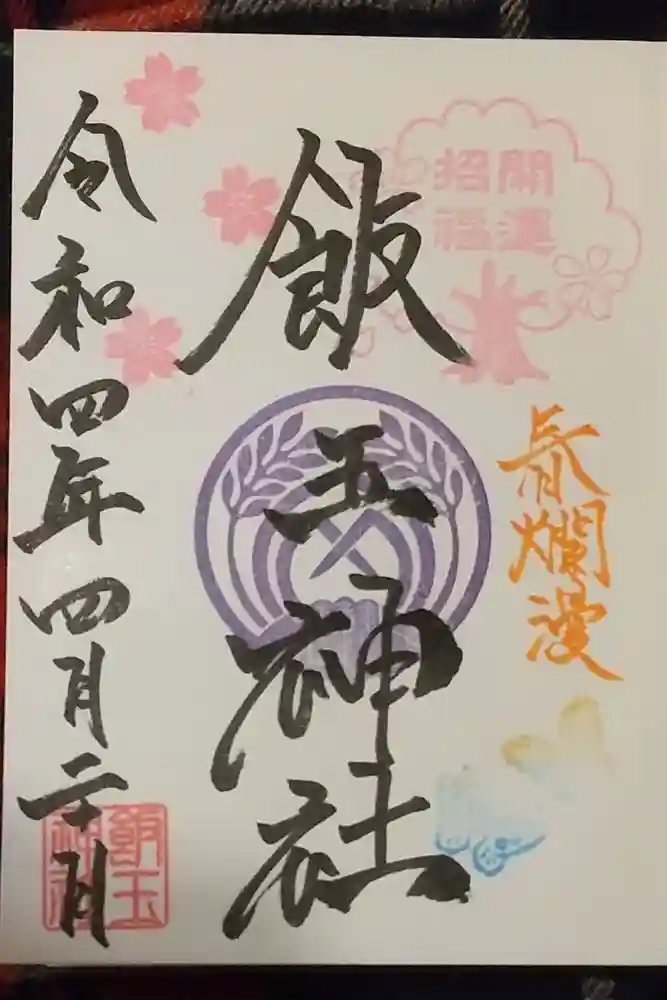 開運
招福
春爛漫
飯玉神社
令和四年四月二十日
飯玉
神社